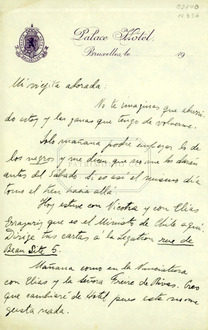 Palace Hôtel.
Bruxelles, le 19
Mi viejita adorada:
No te imaginas que aburri-
do estoy y las ganas que tengo de volverme.
Solo mañana podré empezar lo de
los negros y me dicen que no me lo darán
antes del Sábado. Si es así el mismo día
tomo el tren hacia allá.
Hoy estuve con Nicotra y con Elías
Errázuriz que es el Ministro de Chile aquí.
Dirige tus cartas á la Legation rue de
Beau Site 5.
Mañana como en la Nunciatura
con Elías y la Señora Freire de Rivas. Creo
que cambiaré de Hotel pues este no me
gusta nada.